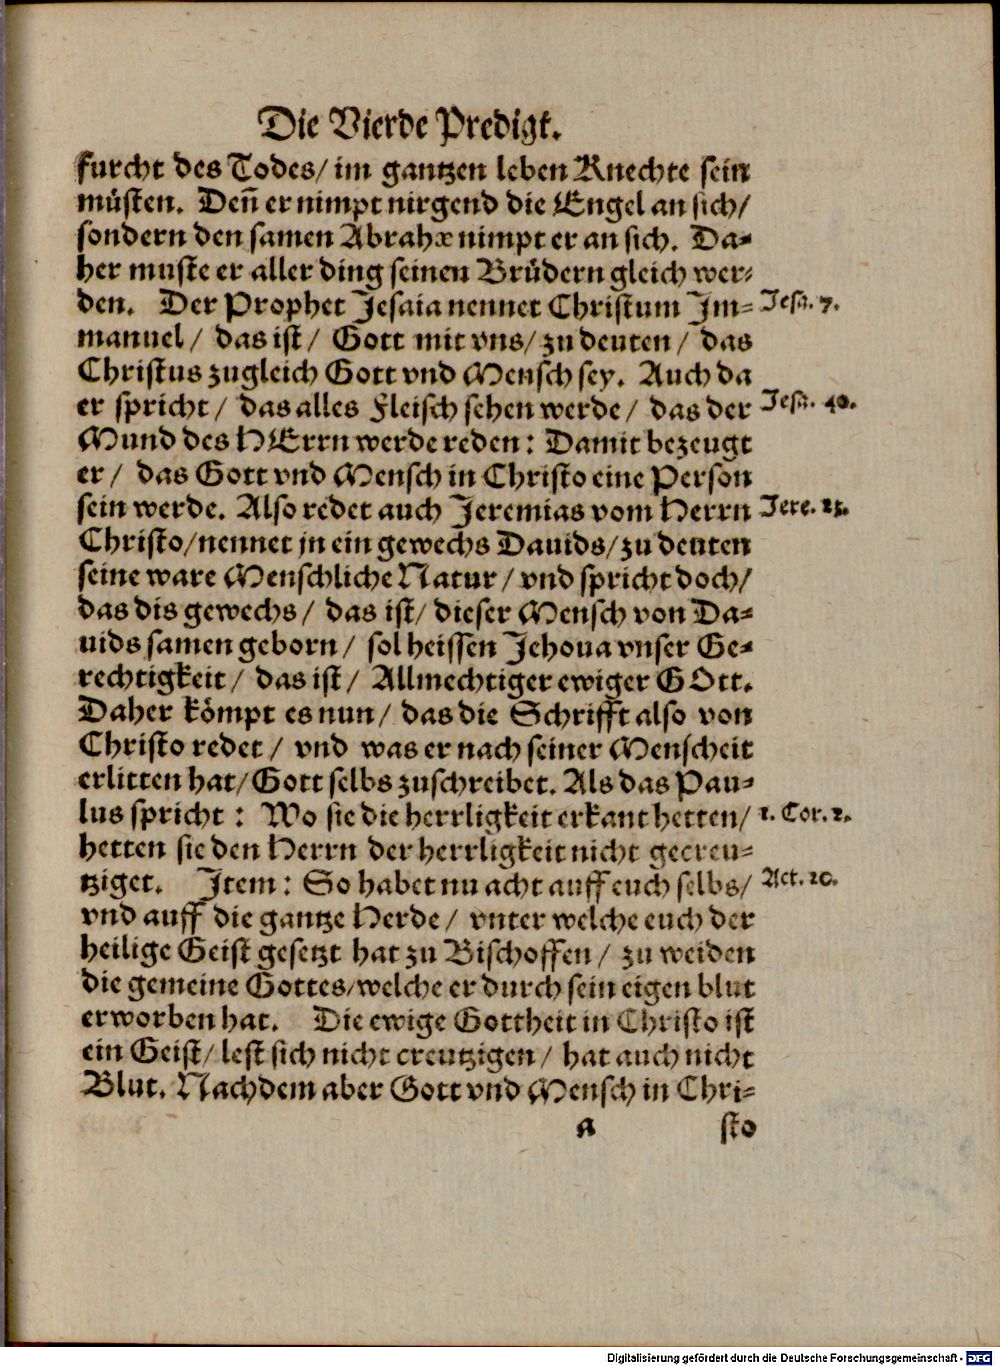 Die Vierde Predigt.
furcht des Todes/ im gantzen leben Knechte sein
müsten. Deñ er nimpt nirgend die Engel an sich/
sondern den samen Abrahæ nimpt er an sich. Da-
her muste er aller ding seinen Brüdern gleich wer-
den. Der Prophet Jesaia nennet Christum Im- Jesa. 7.
manuel/ das ist/ Gott mit vns/ zu deuten/ das
Christus zugleich Gott vnd Mensch sey. Auch da
er spricht/ das alles Fleisch sehen werde/ das der Jesa. 40.
Mund des HErrn werde reden: Damit bezeugt
er/ das Gott vnd Mensch in Christo eine Person
sein werde. Also redet auch Jeremias vom Herrn Jere. 23.
Christo/ nennet jn ein gewechs Dauids/ zu deuten
seine ware Menschliche Natur/ vnd spricht doch/
das dis gewechs/ das ist/ dieser Mensch von Da-
uids samen geborn/ sol heissen Jehoua vnser Ge-
rechtigkeit/ das ist/ Allmechtiger ewiger GOtt.
Daher kömpt es nun/ das die Schrifft also von
Christo redet/ vnd was er nach seiner Menscheit
erlitten hat/ Gott selbs zuschreibet. Als das Pau-
lus spricht: Wo sie die herrligkeit erkant hetten/ 1. Cor. 2.
hetten sie den Herrn der herrligkeit nicht gecreu-
tziget. Item: So habet nu acht auff euch selbs/ Act. 20.
vnd auff die gantze Herde/ vnter welche euch der
heilige Geist gesetzt hat zu Bischoffen/ zu weiden
die gemeine Gottes/ welche er durch sein eigen blut
erworben hat. Die ewige Gottheit in Christo ist
ein Geist/ lest sich nicht creutzigen/ hat auch nicht
Blut. Nachdem aber Gott vnd Mensch in Chri-
a sto
Digitalisierung gefördert durch die Deutsche Forschungsgemeinschaft - DFG